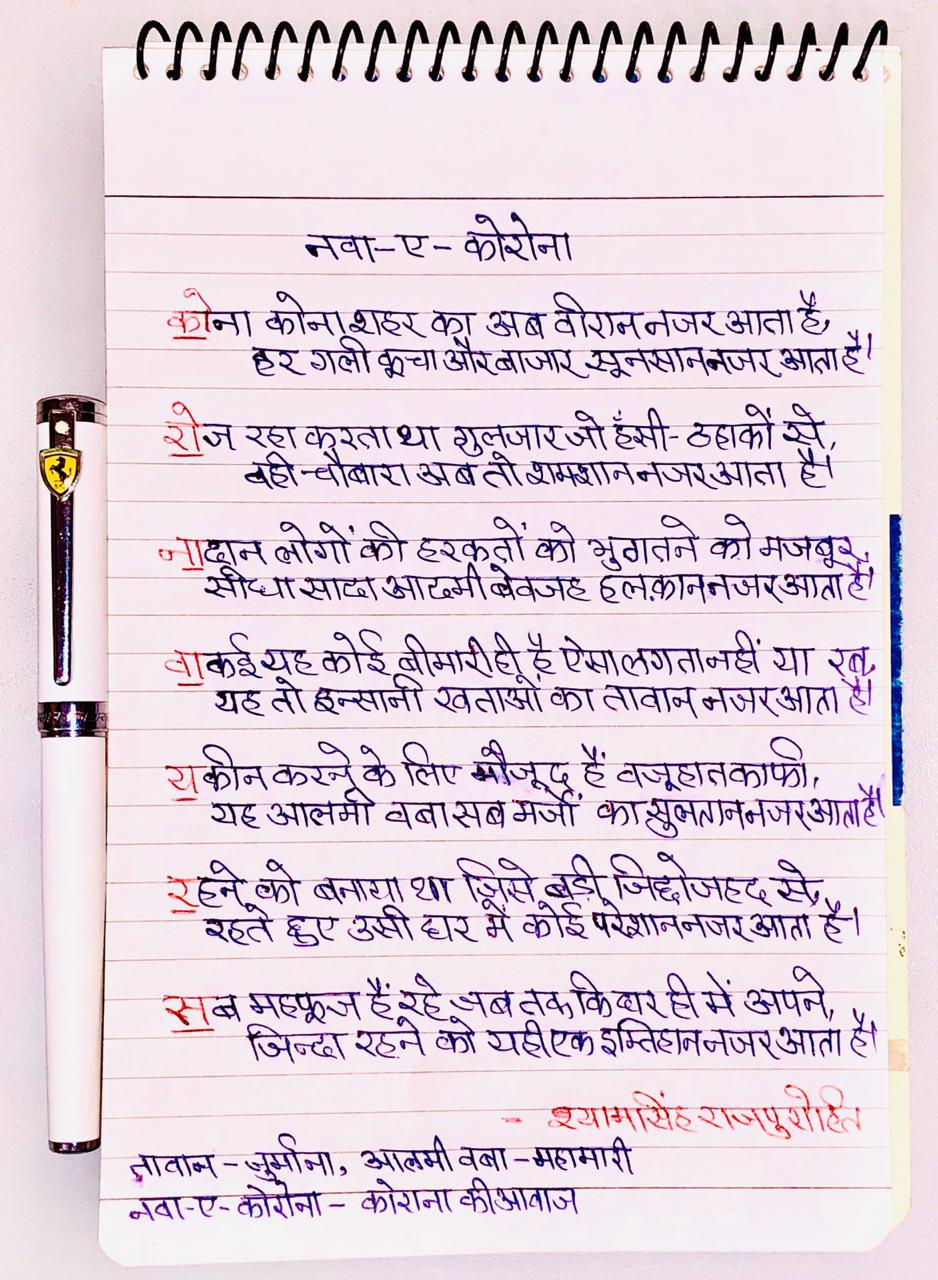 नवा-ए-कोरोना
कोना कोना शहर का अब वीरान नजर आता है,
हर गली कूचा और बाजार सूनसान नजर आता है।
रोज रहा करता था गुलजार जो हँसी-ठहाकों से,
वही चौबारा अब तो शमशान नजर आता है।
नादान लोगों की हरकतों को भुगतने को मजबूर,
सीधा सादा आदमी बेवजह हलक़ान नजर आता है।
वाकई यह कोई बीमारी ही है ऐसा लगता नहीं या रब,
यह तो इन्सानी खताओं का तावान नजर आता है।
यकीन करने के लिए मौजूद हैं वजूहात काफी,
यह आलमी वबा सब मर्जों का सुलतान नजर आता है।
रहने को बनाया था जिसे बड़ी जिद्दोजहद से,
रहते हुए उसी घर में कोई परेशान नजर आता है।
सब महफूज हैं रहे जब तक कि घर ही में अपने,
जिन्दा रहने को यही एक इम्तिहान नजर आता है।
- श्यामसिंह राजपुरोहित
तावान - जुर्माना, आलमी वबा - महामारी
नवा-ए-कोरोना - कोराना की आवाज